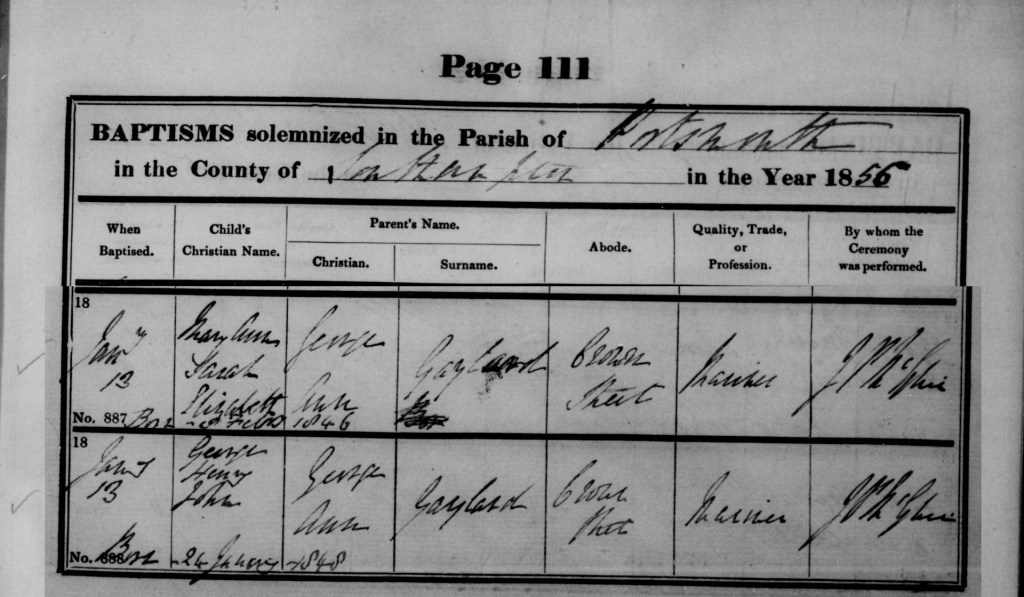 Page 111
BAPTISMS solemnized in the Parish of Portsmouth
in the County of Southampton in the Year 1856
When Baptised. Child's Christian Name. Parent's Name. Abode. Quality, Trade, or Profession. By whom the Ceremony was performed.
Christian. Surname.
18
Jany 13 Mary Ann Sarah Elizabeth George Ann Gaylard Crown Street Mariner
No. 887 Born 1846
18
Jany 13 George Henry John George Ann Gaylard Crown Street Mariner
No. 888 Born 24 January 1848